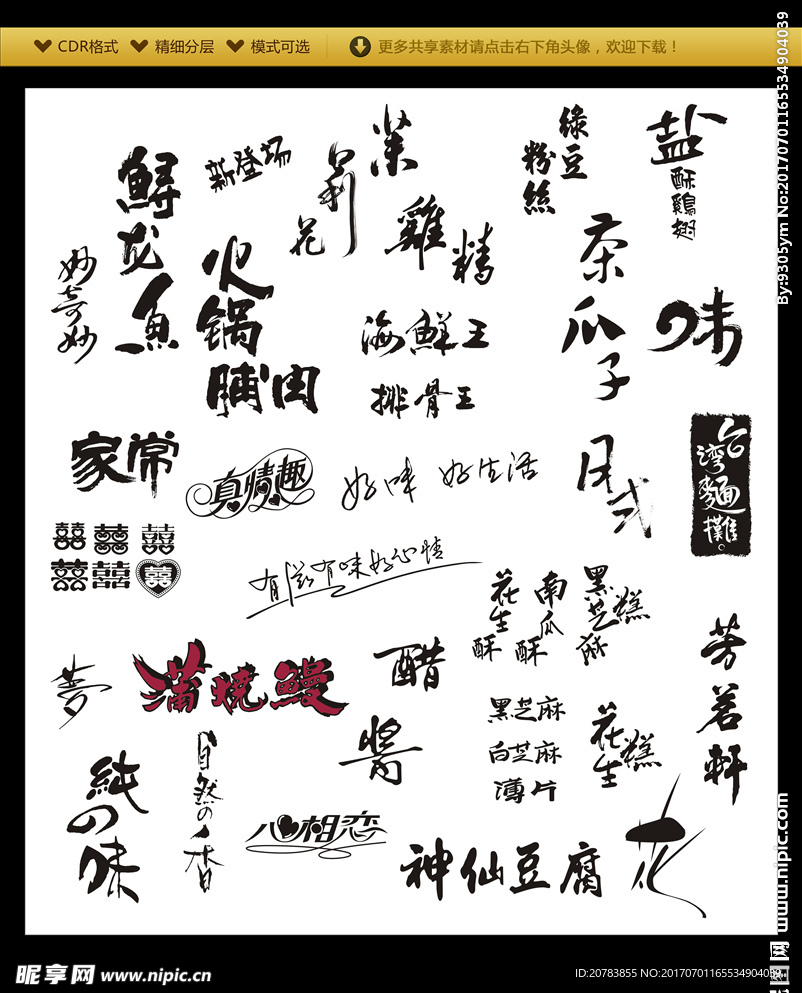 CDR格式 精细分层 模式可选 更多共享素材请点击右下角头像，欢迎下载！
By:9305ym No:20170701165534904039
鲟龙鱼
新登场
茉莉花
綠豆粉絲
盐
酥鷄翅
妙奇妙
火锅
雞精
茶瓜子
味
海鮮王
脯肉
排骨王
家常
真情趣
好味 好生活
台灣麵攤。
囍 囍 囍
囍 囍 囍
有滋有味好心情
花生酥
南瓜酥
黑芝糕
夢
蒲燒鰻
醋
芳茗軒
黑芝麻
白芝麻
薄片
花生糕
醬
純の味
自然の香
心相恋
神仙豆腐
花
www.nipic.com
昵享网 www.nipic.cn
ID:20783855 NO:20170701165534904039